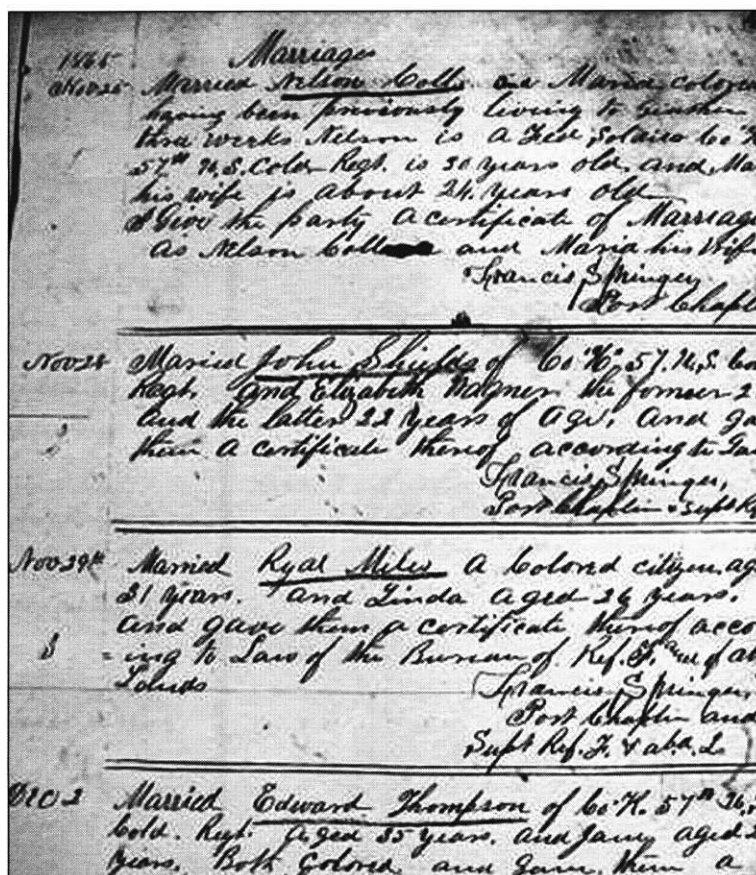 Marriages
1865
Nov 25 Married Nelson Colle and Maria colored
having been previously living to
thre weeks Nelson is a Soldier Co
57th U.S. Cold Regt. is 30 years old and
his wife is about 24 years old
I Give the party a certificate of Marriage
as Nelson and Maria his Wife
Francis Springer
Post Chapl
Nov 28 Maried John Shields of Co "K" 57. U.S. Co
Regt. and Elizabeth Wagner the former 2
and the latter 22 years of age. and ga
them a certificate thereof according to La
Francis Springer,
Post Chaplin & Supt R
Nov 29th Married Ryal Miles a Colored citizen, ag
21 years. and Linda aged 26 years.
and gave them a certificate thereof acco
=ing to Law of the Bureau of Ref. F. and of ab
Lands
Francis Springer
Post Chaplin and
Supt Ref. F. & aba. L
Dec 2 Married Edward Thompson of Co. K. 57th
Cold. Regt. aged 35 years. and Jane aged
years. Both Colored and gave them a